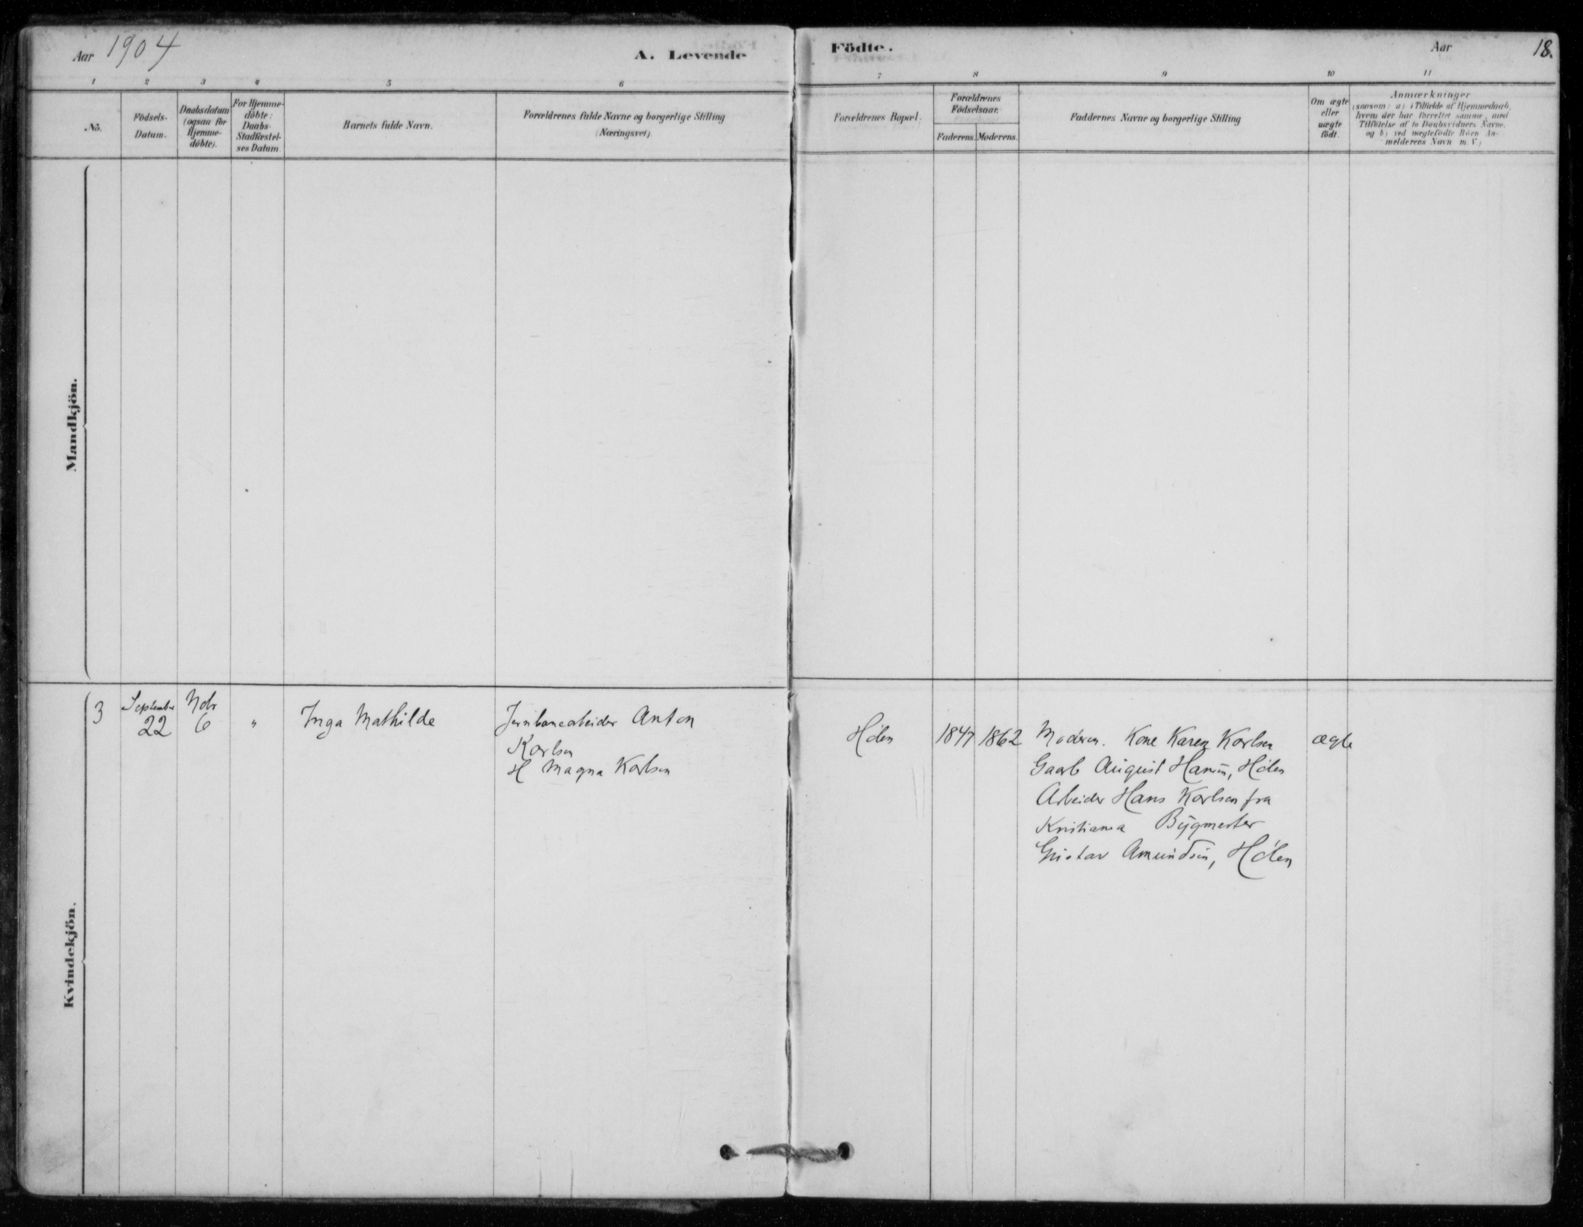 Aar 1904
A. Levende
Födte.
Aar
18.
1 2 3 4 5 6
7 8 9 10 11
No.
Födsels-
Datum.
Daabsdatum
(ogsaa for
Hjemme-
döbte).
For Hjemme-
döbte:
Daabs-
Stadfæstel-
ses Datum.
Barnets fulde Navn.
Forældrenes fulde Navne og borgerlige Stilling
(Næringsvei).
Forældrenes Bopæl.
Forældrenes
Födselsaar.
Faderens.
Moderens.
Faddernes Navne og borgerlige Stilling
Om ægte
eller
uægte
födt.
Anmærkninger
(saasom: a) i Tilfælde af Hjemmedaab,
hvem der har forrettet samme, med
Tilföielse af to Daabsvidners Navne,
og b) ved uægtefödte Börn An-
melderens Navn m. V.)
Mandkjön.
Kvindekjön.
3
September
22
Nobr
6
"
Inga Mathilde
Jernbanearbeider Anton
Karlsen
H Magna Karlsen
Hölen
1847
1862
Moderen. Kone Karen Karlsen
Gaarb August Hansen, Hölen
Arbeider Hans Karlsen fra
Kristiania Bygmester
Gustav Amundsen, Hölen
ægte